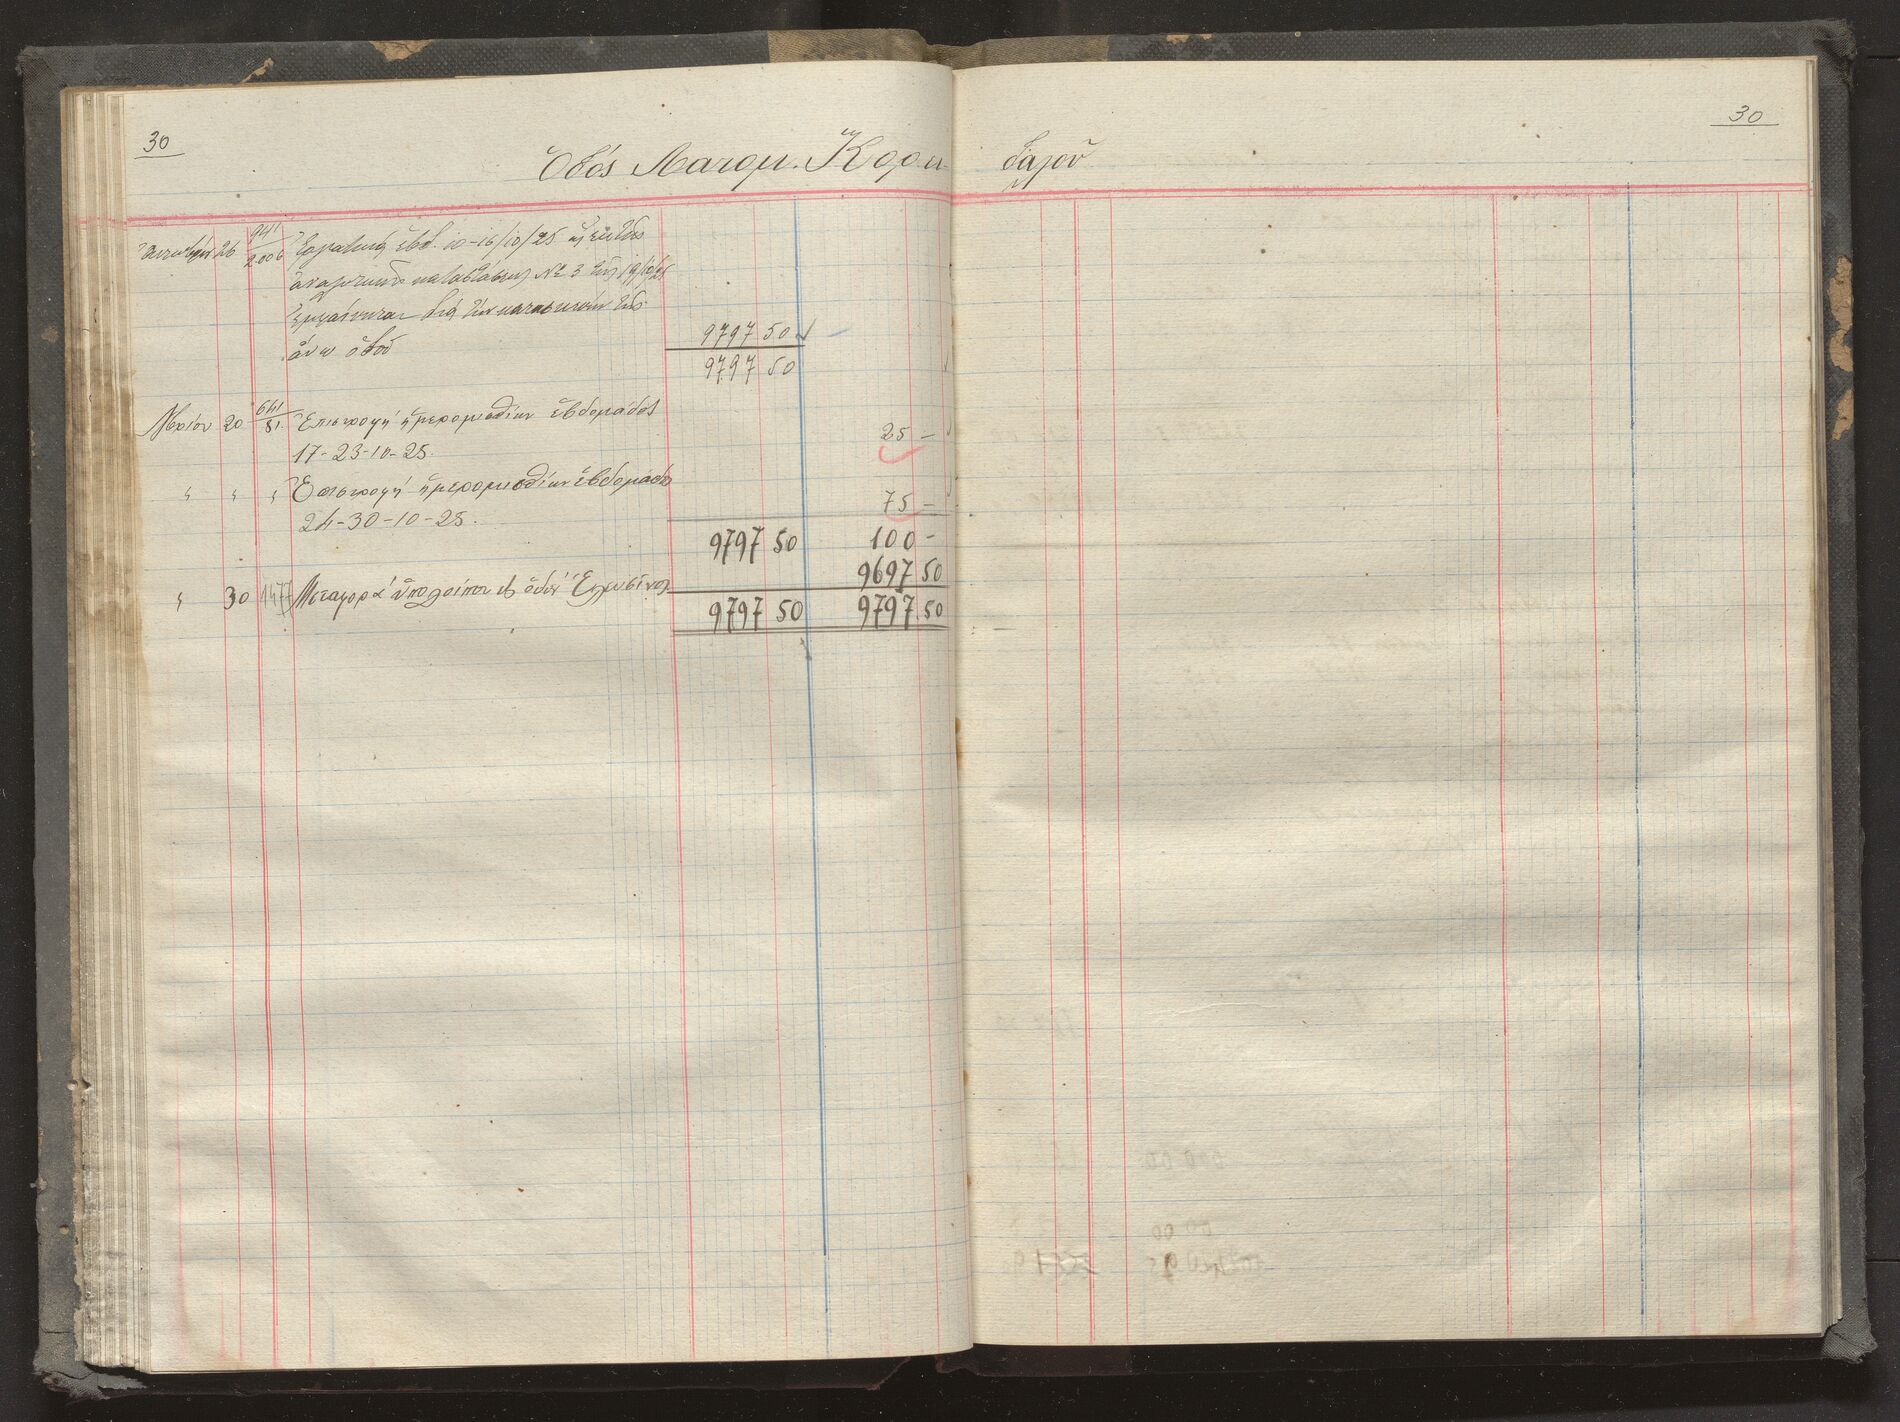 30
30
Ὁδός Λατομ. Κορυ δαλοῦ
26 941/2006 Ἐργατικά ἑβδ. 10-16/10/25 ὡς ἐκ τῆς
ἀναλυτικῆς καταστάσεως Νο 3 τῆς 19/10/25
ἐμφαίνεται διά τήν κατασκευήν τῆς
ἄνω ὁδοῦ 9797 50
9797 50
Μαΐου 20 641/81 Ἐπιστροφή ἡμερομισθίων ἑβδομάδος
17-23-10-25. 25 —
" " " Ἐπιστροφή ἡμερομισθίων ἑβδομάδος
24-30-10-25. 75 —
9797 50 100 -
9697 50
" 30 1477 Μεταφορά ὑπολοίπου εἰς ὁδόν Ἐλευσῖνος
9797 50 9797.50